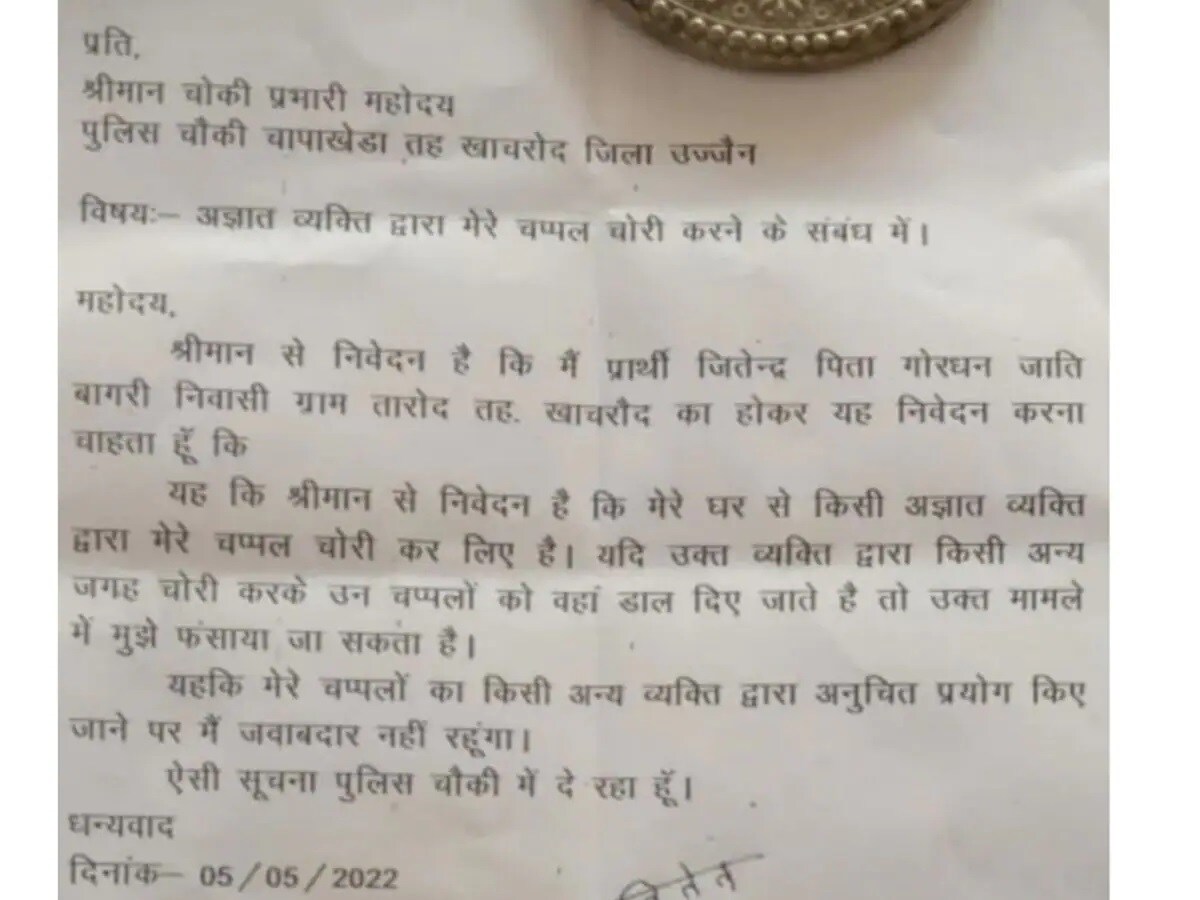 प्रति,
श्रीमान चोकी प्रभारी महोदय
पुलिस चौकी चापाखेडा तह खाचरोद जिला उज्जैन
विषयः– अज्ञात व्यक्ति द्वारा मेरे चप्पल चोरी करने के संबंध में।
महोदय,
श्रीमान से निवेदन है कि मैं प्रार्थी जितेन्द्र पिता गोरधन जाति
बागरी निवासी ग्राम तारोद तह. खाचरौद का होकर यह निवेदन करना
चाहता हूॅं कि
यह कि श्रीमान से निवेदन है कि मेरे घर से किसी अज्ञात व्यक्ति
द्वारा मेरे चप्पल चोरी कर लिए है। यदि उक्त व्यक्ति द्वारा किसी अन्य
जगह चोरी करके उन चप्पलों को वहां डाल दिए जाते है तो उक्त मामले
में मुझे फंसाया जा सकता है।
यहकि मेरे चप्पलों का किसी अन्य व्यक्ति द्वारा अनुचित प्रयोग किए
जाने पर मैं जवाबदार नहीं रहूंगा।
ऐसी सूचना पुलिस चौकी में दे रहा हूॅं।
धन्यवाद
दिनांक– 05/05/2022